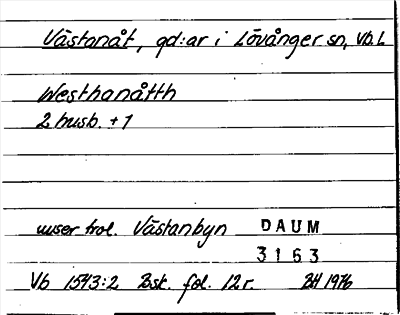 Västanåt, gd:ar i Lövånger sn, Vb. L
Westhanåtth
2 husb. + 1
avser trol. Västanbyn DAUM
3163
Vb 1543:2 Bsk. fol. 12 r. BH 1976